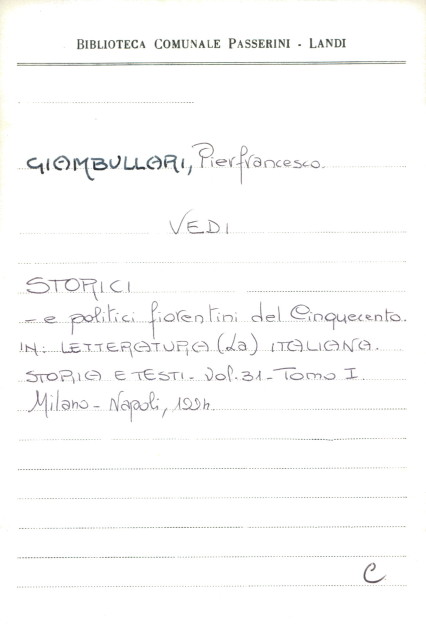 BIBLIOTECA COMUNALE PASSERINI - LANDI
GIAMBULLARI, Pierfrancesco.
VEDI
STORICI
- e politici fiorentini del Cinquecento.
IN: LETTERATURA (La) ITALIANA.
STORIA E TESTI. Vol. 31 - Tomo I.
Milano - Napoli, 1994.
C